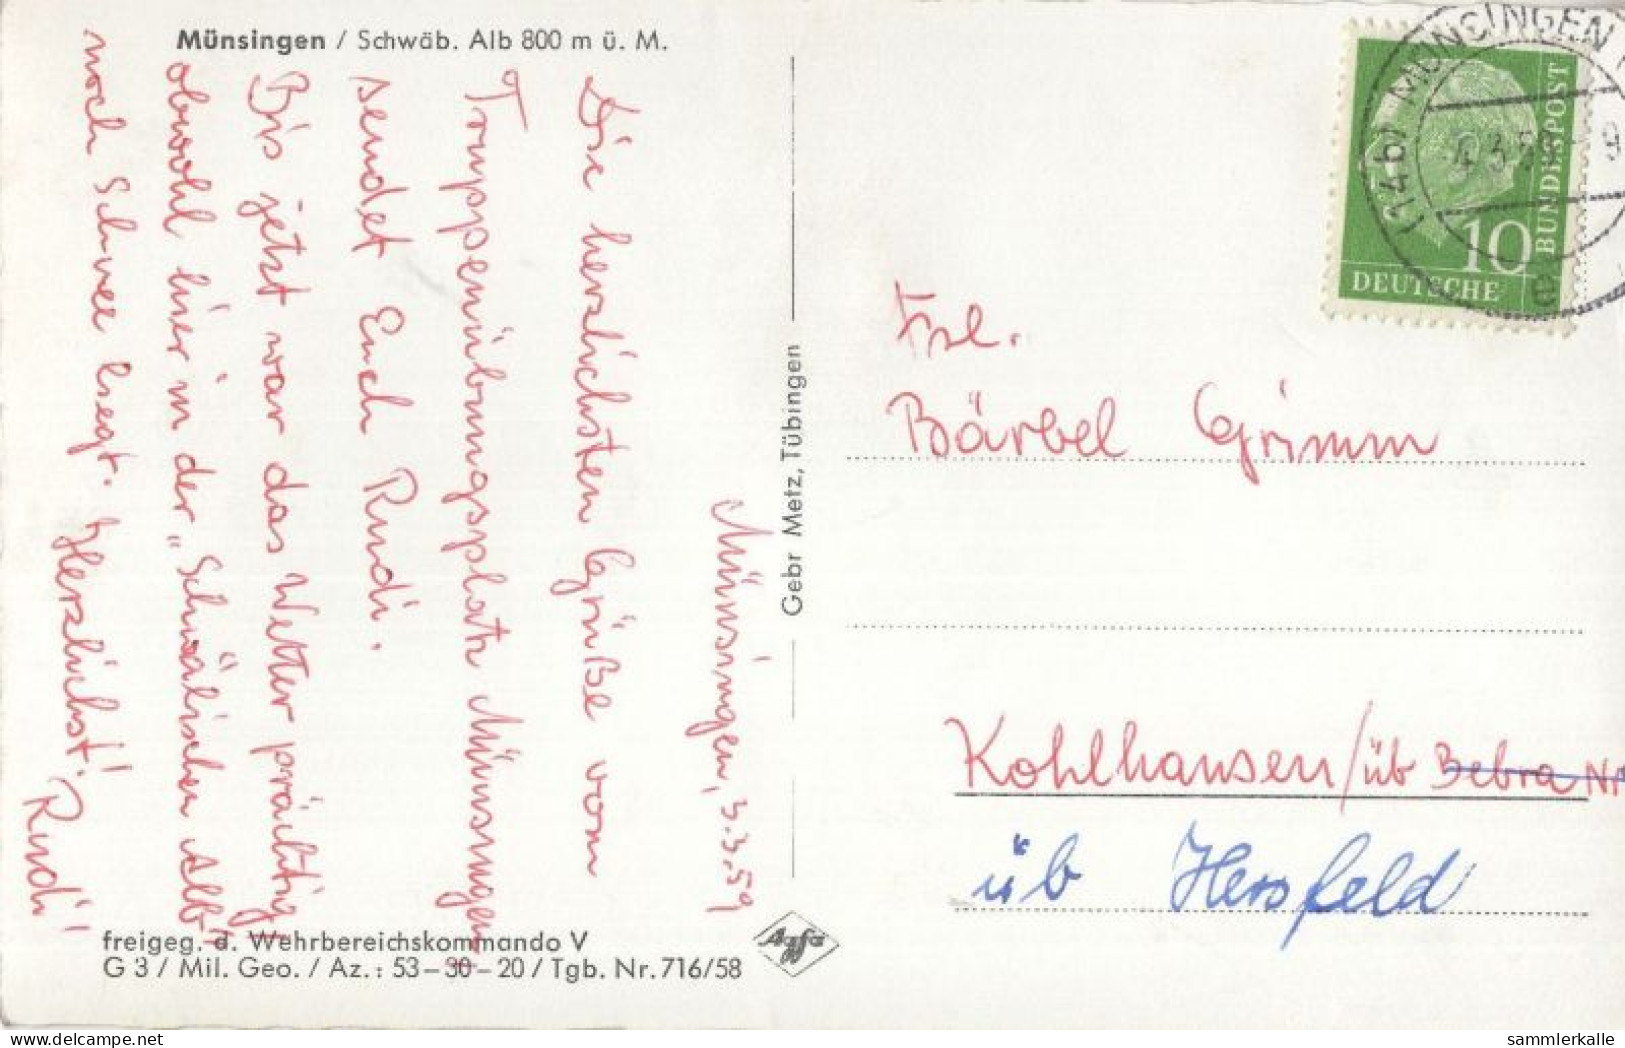 Münsingen / Schwäb. Alb 800 m ü. M.
Münsingen, 3.3.59
Die herzlichsten Grüße vom
Truppenübungsplatz Münsingen
sendet Euch Rudi.
Bis jetzt war das Wetter prächtig,
obwohl hier in der „Schwäbischen Alb“
noch Schnee liegt. Herzlichst!
Rudi!
freigeg. d. Wehrbereichskommando V
G 3 / Mil. Geo. / Az.: 53-30-20 / Tgb. Nr. 716/58
Gebr Metz, Tübingen
Agfa
(14b) MÜNSINGEN
e
10
DEUTSCHE
BUNDESPOST
Frl.
Bärbel Grimm
Kohlhausen / üb Bebra
üb Hersfeld
sammlerkalle